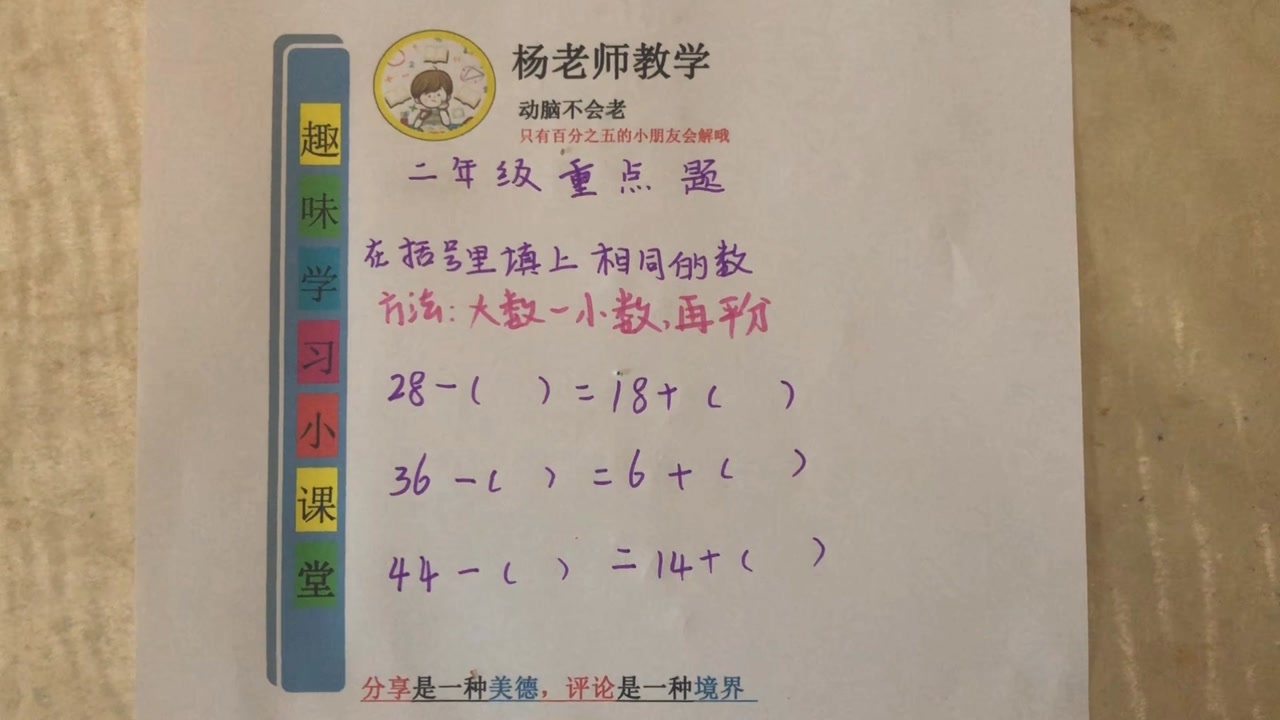 趣味学习小课堂
杨老师教学
动脑不会老
只有百分之五的小朋友会解哦
二年级重点题
在括号里填上相同的数
方法:大数-小数,再平分
28-( )=18+( )
36-( )=6+( )
44-( )=14+( )
分享是一种美德，评论是一种境界